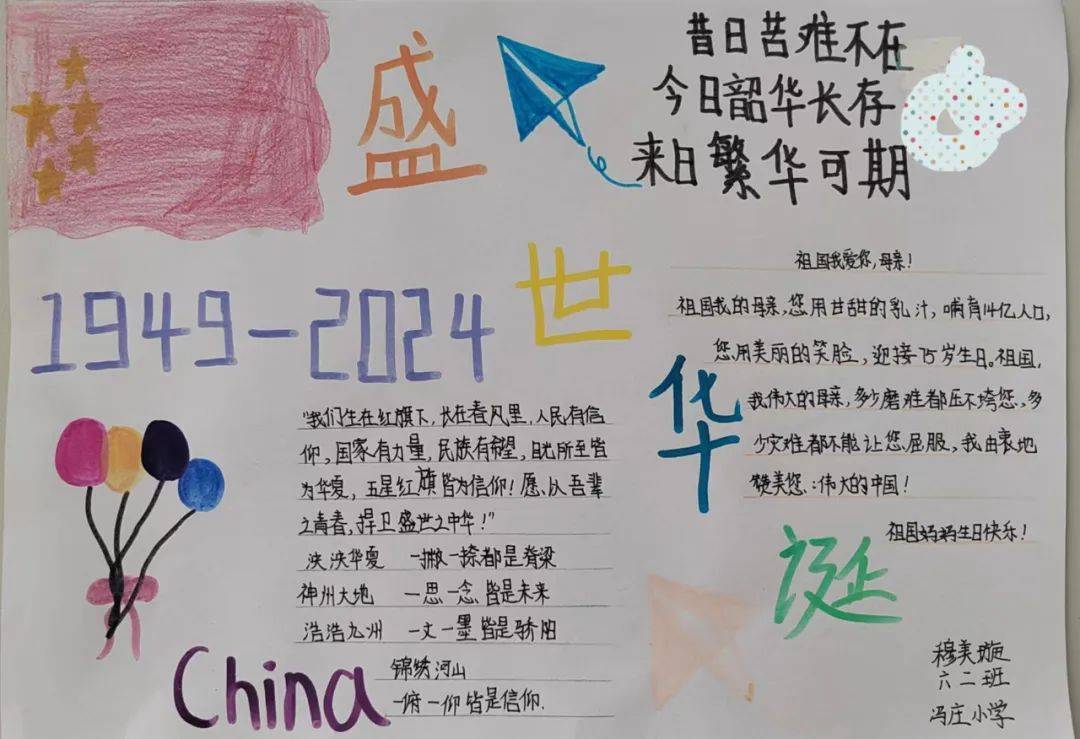 盛
世
华
诞
昔日苦难不在
今日韶华长存
来日繁华可期
1949-2024
祖国我爱你,母亲!
祖国我的母亲,您用甘甜的乳汁,哺育14亿人口,
您用美丽的笑脸,迎接75岁生日。祖国,
我伟大的母亲,多少磨难都压不垮您,多
少灾难都不能让您屈服,我由衷地
赞美您:伟大的中国!
祖国妈妈生日快乐!
"我们生在红旗下,长在春风里,人民有信
仰,国家有力量,民族有希望,目光所至皆
为华夏,五星红旗皆为信仰!愿以吾辈
之青春,捍卫盛世之中华!"
泱泱华夏 一撇一捺都是脊梁
神州大地 一思一念皆是未来
浩浩九州 一文一墨皆是骄阳
锦绣河山
一俯一仰皆是信仰.
China
穆美璇
六二班
冯庄小学